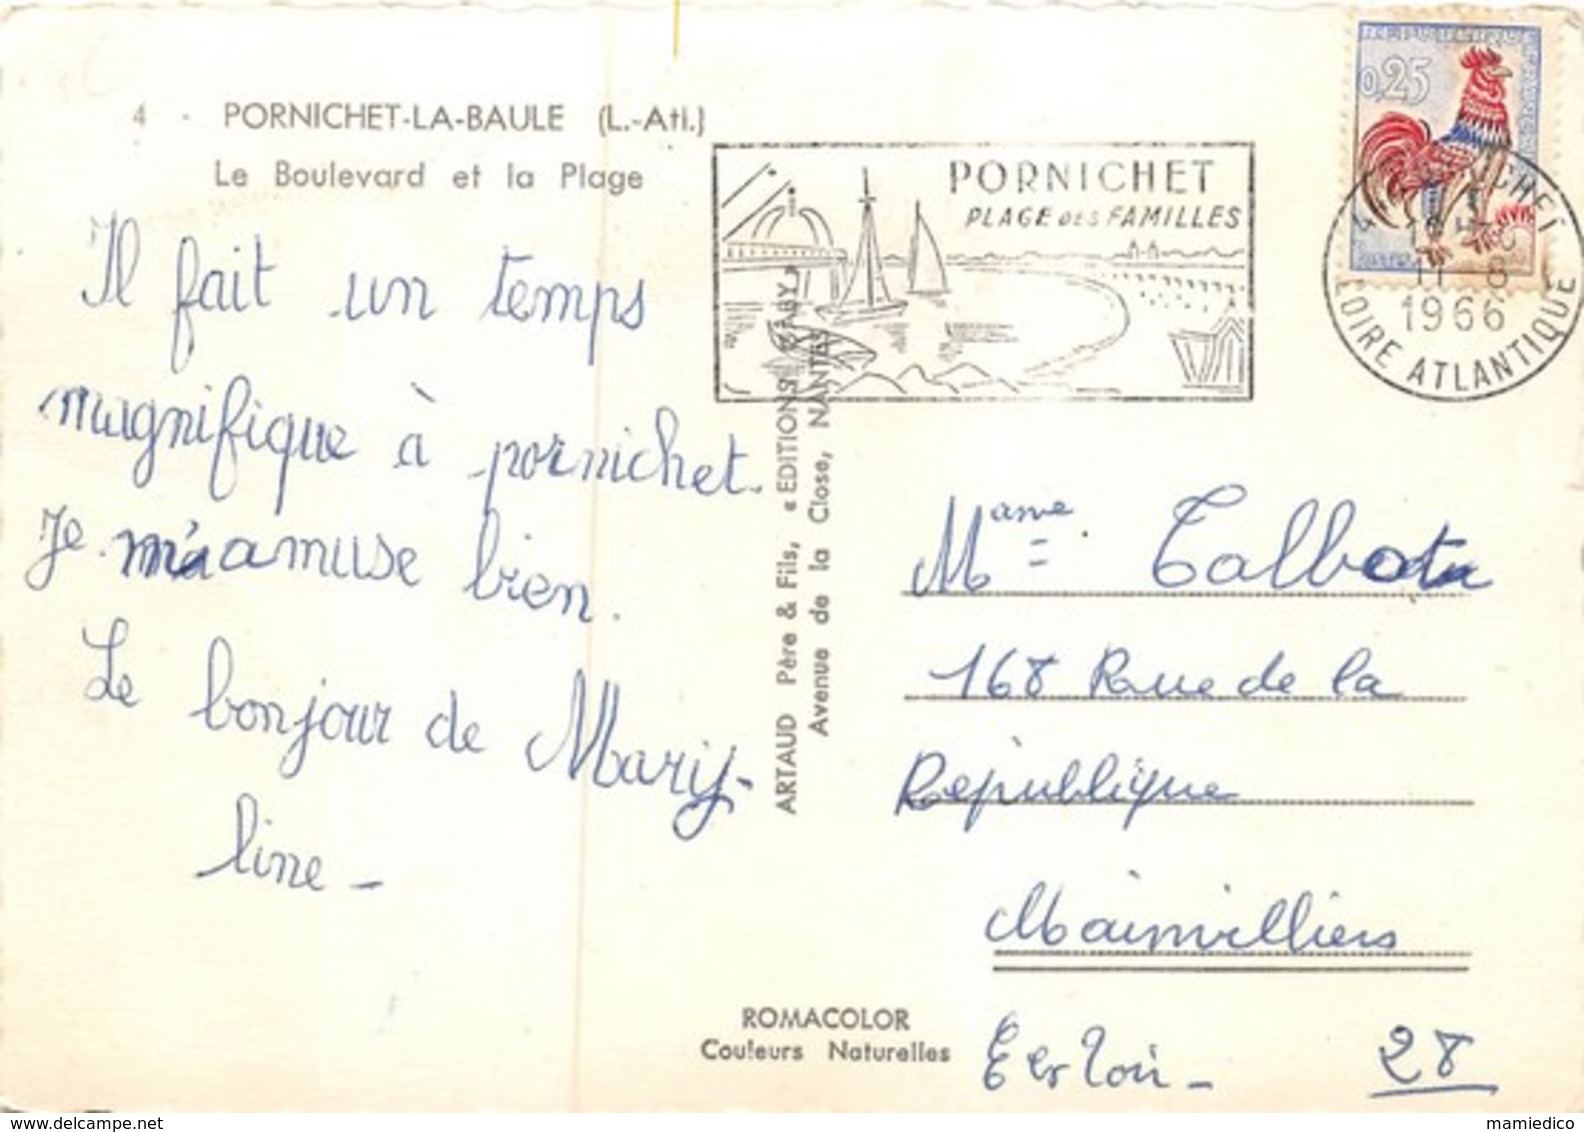 4 - PORNICHET-LA-BAULE (L.-Atl.)
Le Boulevard et la Plage
Il fait un temps
magnifique à pornichet.
Je m'amuse bien.
Le bonjour de Mary-
line -
ARTAUD Père & Fils, « EDITIONS GABY »
Avenue de la Close, NANTES
ROMACOLOR
Couleurs Naturelles
PORNICHET
PLAGE DES FAMILLES
REPUBLIQUE FRANCAISE
0,25
POSTES
11-8
1966
LOIRE ATLANTIQUE
Mame Talbot
168 Rue de la
République
Mainvilliers
E et Loir -
28
www.delcampe.net
mamiedico